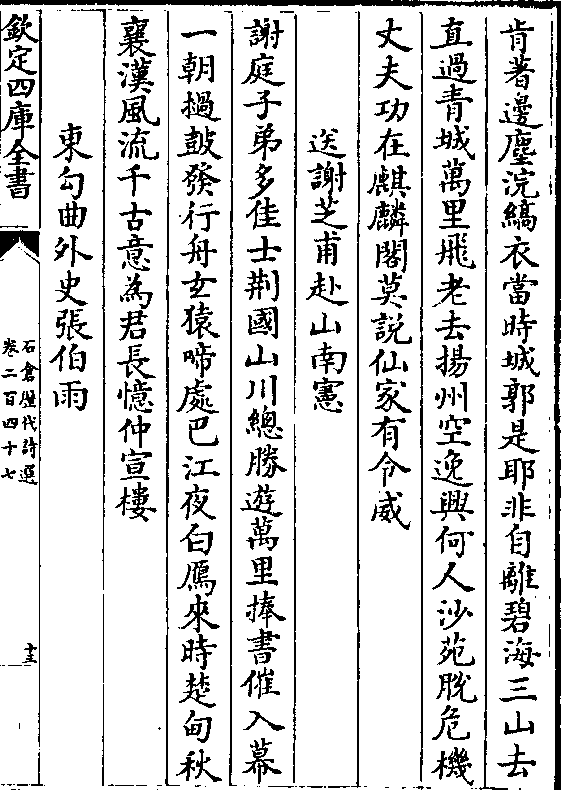 肯著邊塵浣縞衣當時城郭是耶非自離碧海三山去
直過青城萬里飛老去揚州空逸興何人沙苑脫危機
丈夫功在麒麟閣莫說仙家有令威
送謝芝甫赴山南憲
謝庭子弟多佳士荆國山川總勝遊萬里捧書催入幕
一朝撾鼓發行舟玄猿啼處巴江夜白鴈來時楚甸秋
襄漢風流千古意為君長憶仲宣樓
東勾曲外史張伯雨
欽定四庫全書
石倉歷代詩選
卷二百四十七
十三